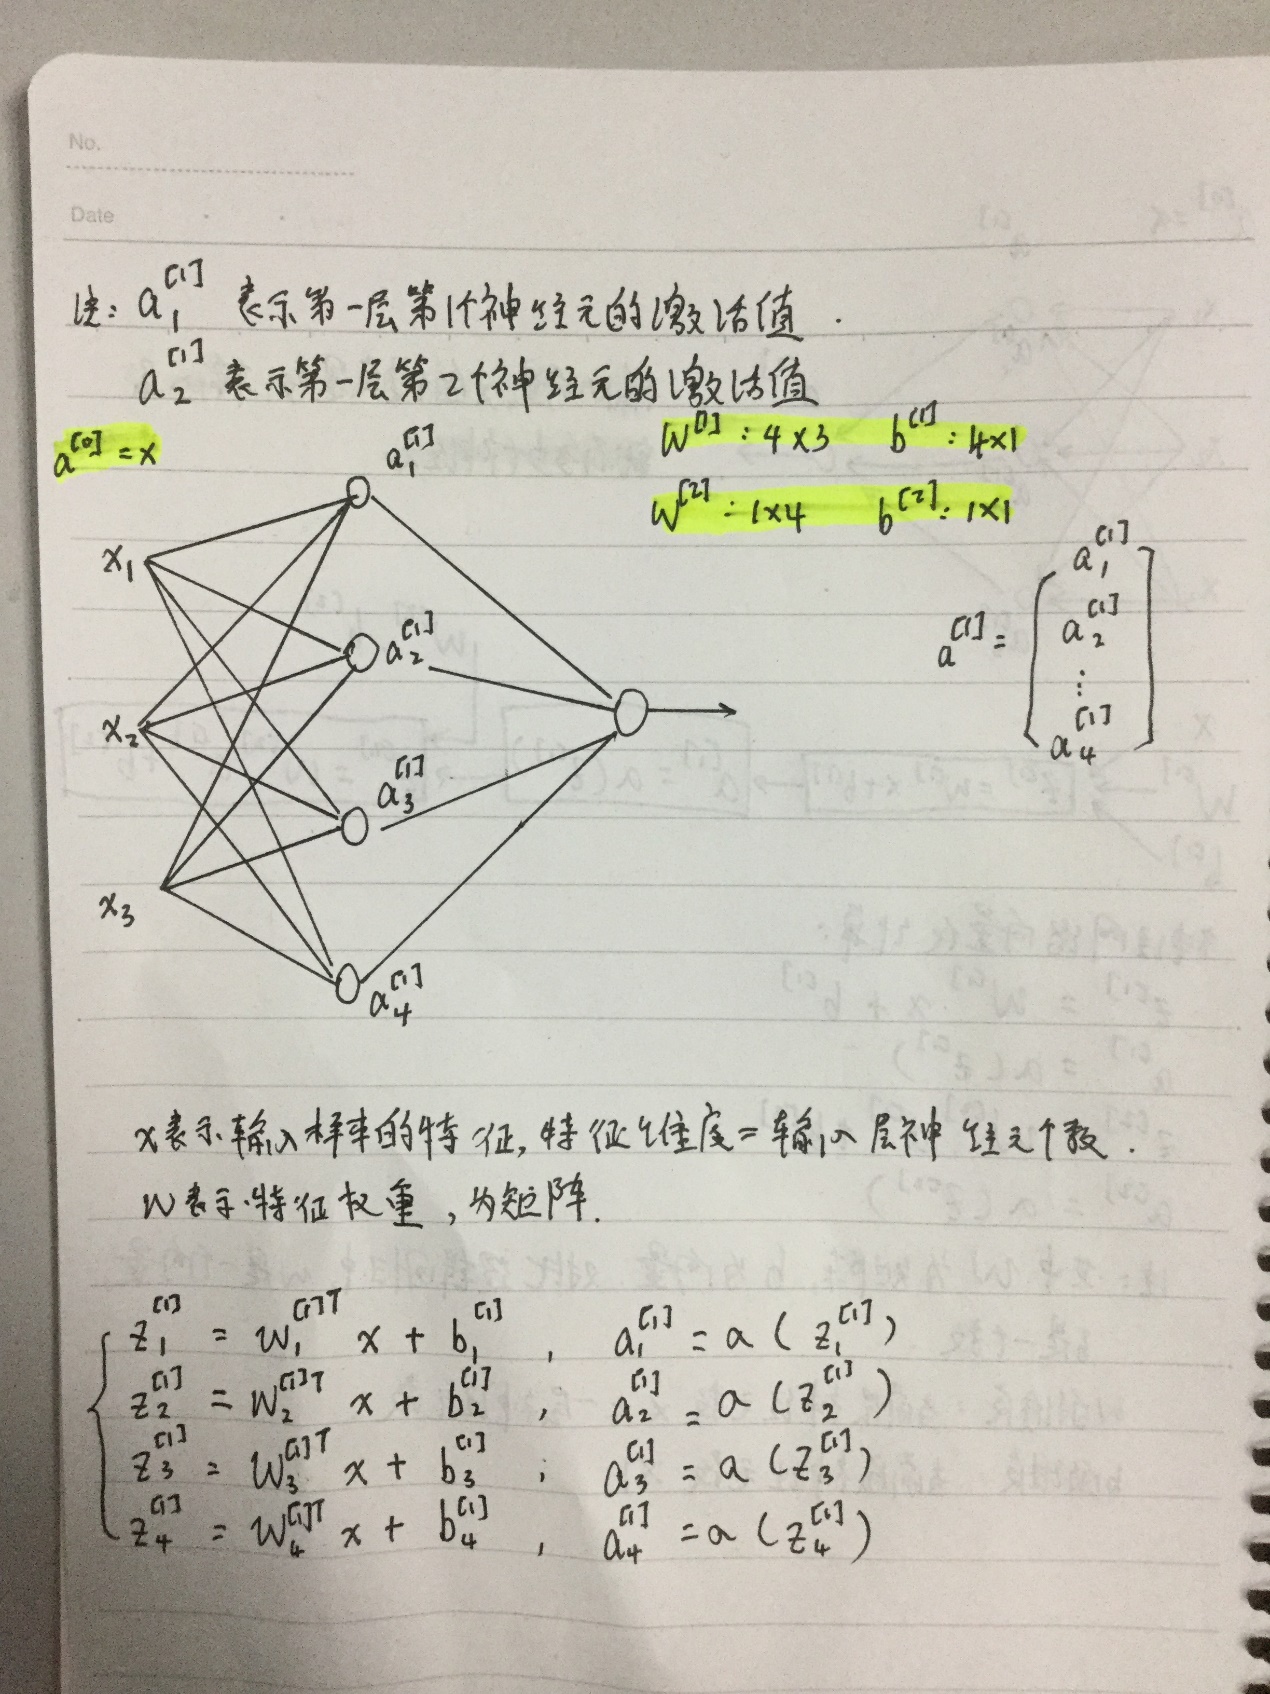 No.
Date
注: a₁^[1] 表示第一层第1个神经元的激活值.
a₂^[1] 表示第一层第2个神经元的激活值
a^[0] = x
W^[1] : 4×3 b^[1] : 4×1
W^[2] : 1×4 b^[2] : 1×1
a₁^[1]
x₁
a₂^[1]
x₂
a₃^[1]
x₃
a₄^[1]
a^[1] = [ a₁^[1] a₂^[1] ⋮ a₄^[1] ]
x表示输入样本的特征, 特征维度=输入层神经元个数.
W表示特征权重, 为矩阵.
z₁^[1] = w₁^[1]T x + b₁^[1] , a₁^[1] = a ( z₁^[1] )
z₂^[1] = w₂^[1]T x + b₂^[1] , a₂^[1] = a ( z₂^[1] )
z₃^[1] = w₃^[1]T x + b₃^[1] , a₃^[1] = a ( z₃^[1] )
z₄^[1] = w₄^[1]T x + b₄^[1] , a₄^[1] = a ( z₄^[1] )